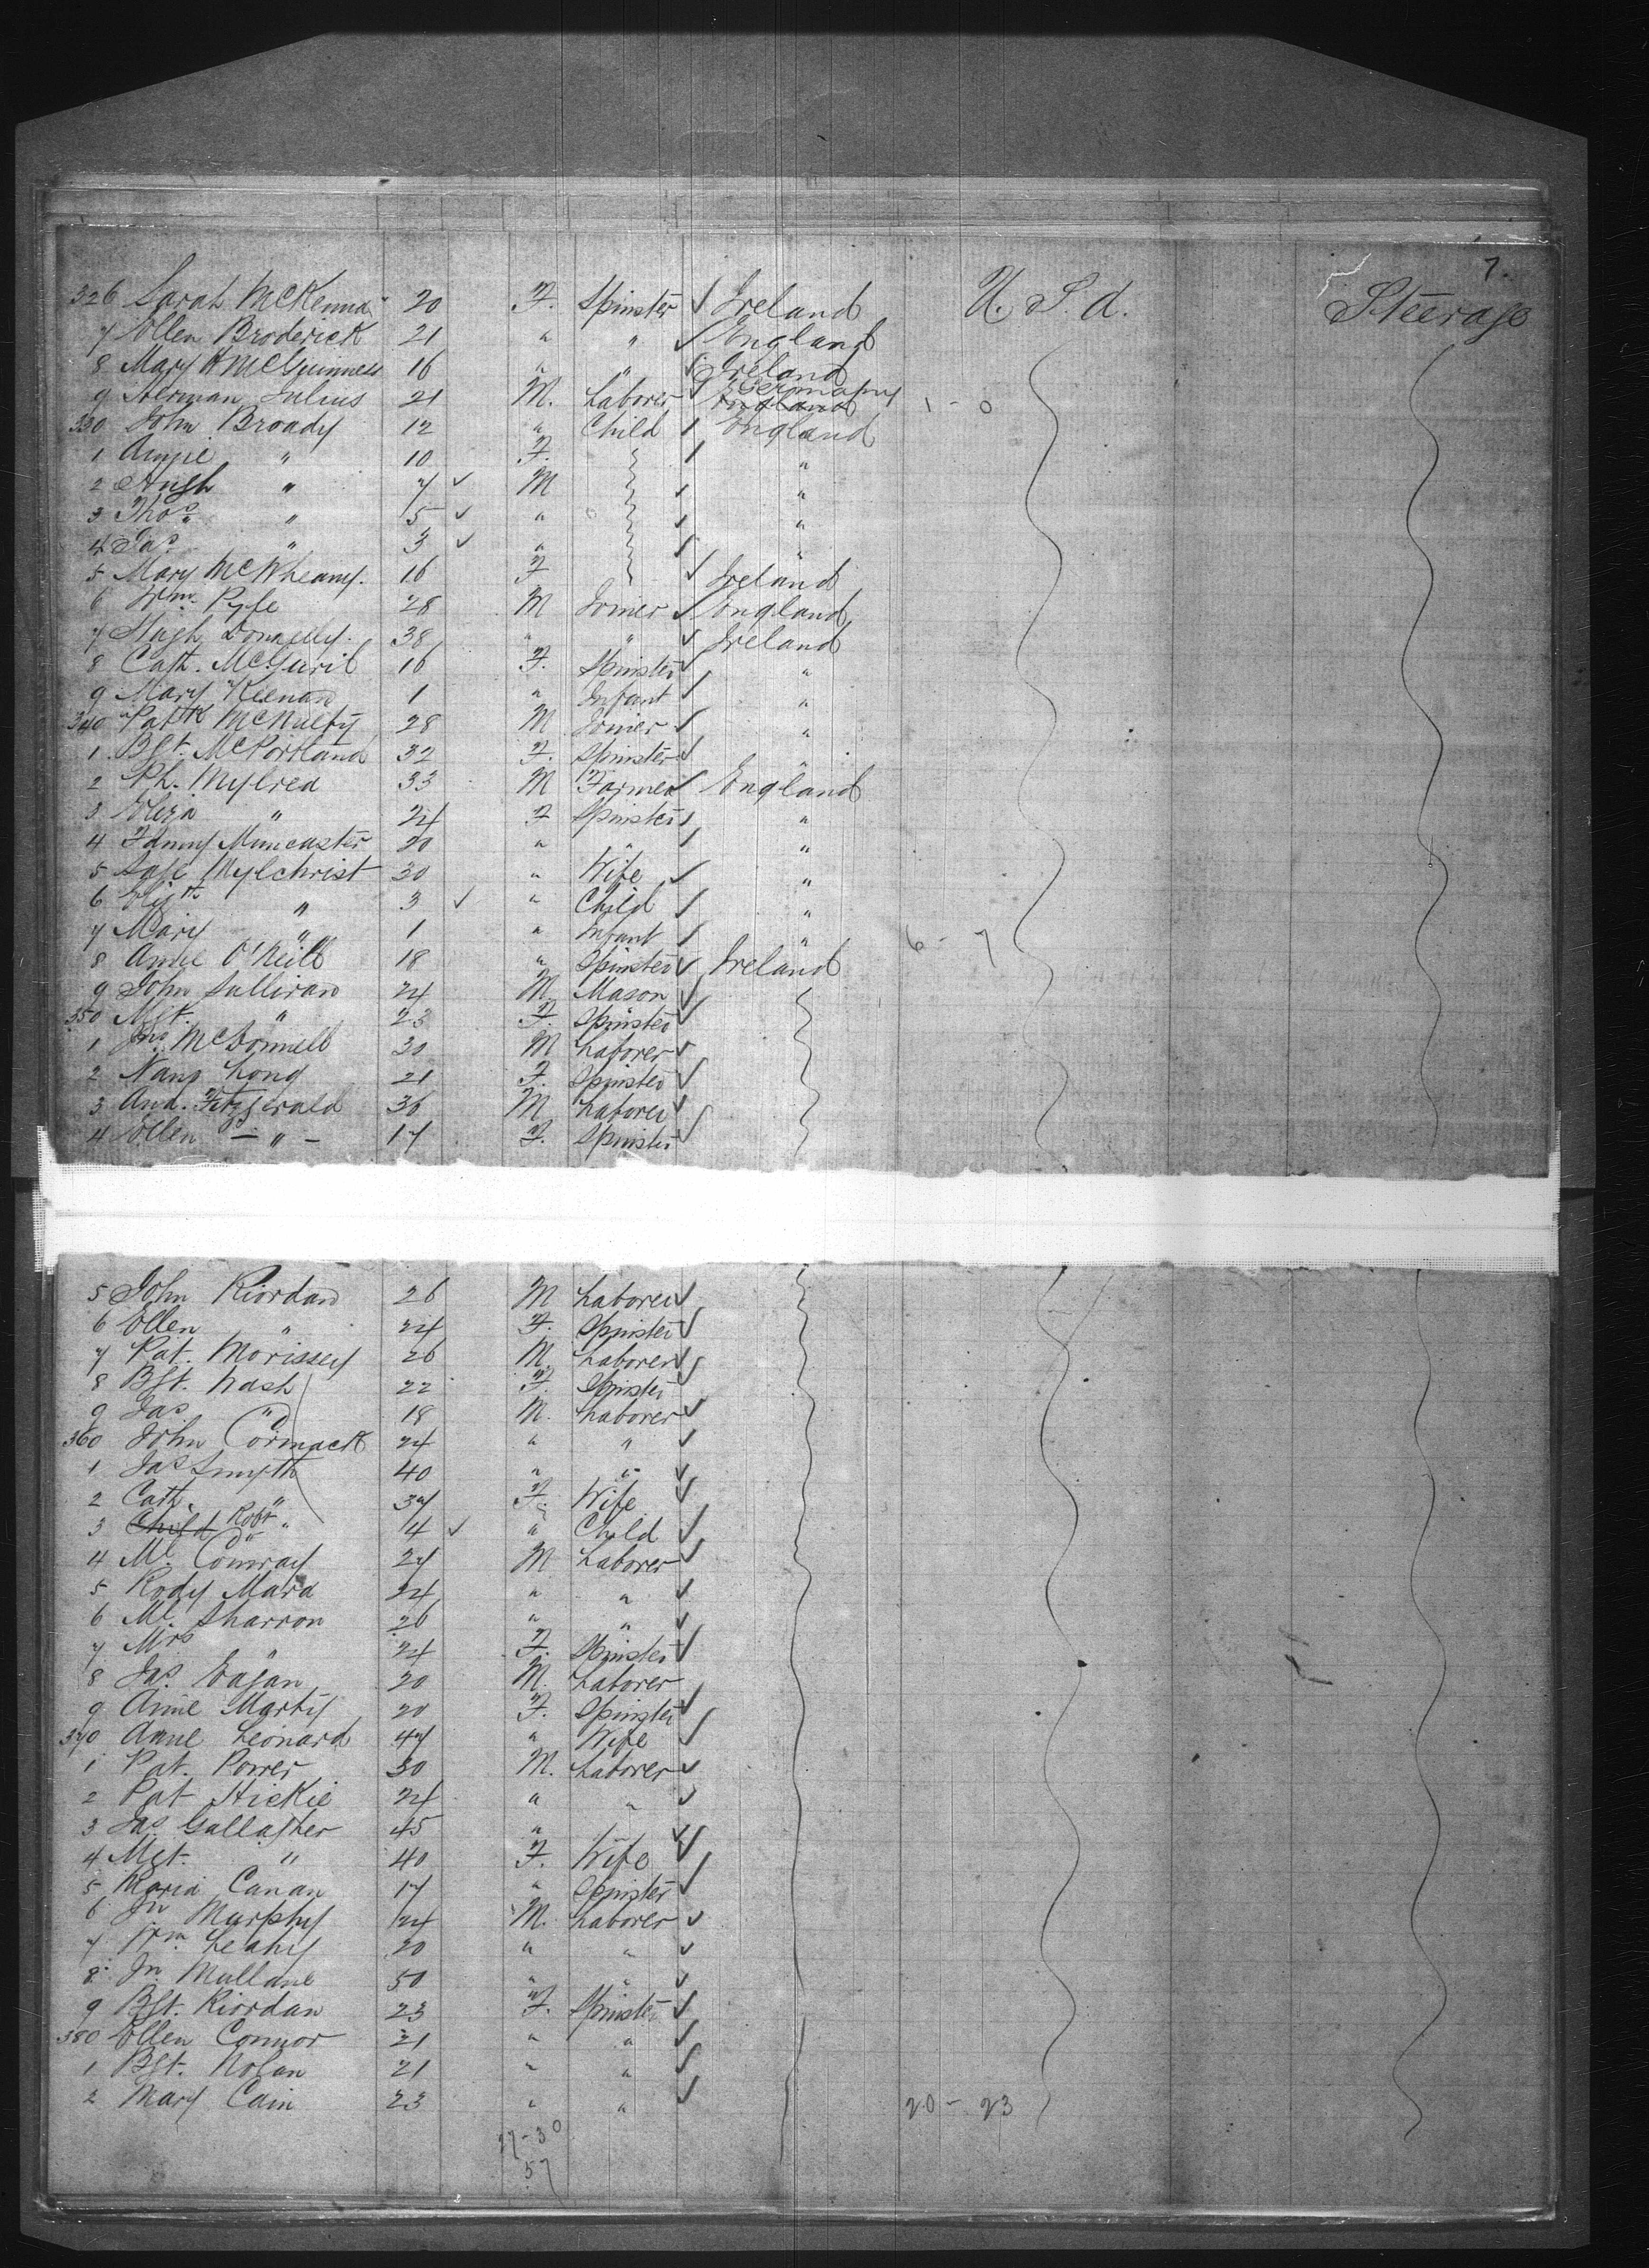 7.
326 Sarah McKenna 20 F. Spinster Ireland U. S. A. Steerage
7 Ellen Broderick 21 " " England
8 Mary A McGuinness 16 " " Ireland
9 Herman Julius 21 M. Laborer England Germany 1 - 0
330 John Broady 12 " Child England
1 Annie " 10 F. "
2 Hugh " 7 M "
3 Thos " 5 " "
4 Jas " 3 " "
5 Mary 16 F Ireland
6 Wm. Pyfe 28 M Joiner England
7 Hugh Donnelly. 38 " " Ireland
8 Cath. McGuril 16 F. Spinster "
9 Mary Keenan 1 " Infant "
340 Patk McNulty 28 M Joiner "
1 Bgt. McPortland 32 F. Spinster "
2 Ph. Mylrea 33 M Farmer England
3 Eliza " 24 F Spinster "
4 Fanny Muncaster 20 " " "
5 Mylchrist 30 " Wife "
6 Elizth " 3 " Child "
7 Mary " 1 " Infant " 6 - 7
8 Annie O'Neill 18 " Spinster Ireland
9 John Sullivan 24 M. Mason
350 Mgt. " 23 F. Spinster
1 Jno McDonnell 30 M Laborer
2 Nano Long 21 F. Spinster
3 And. Fitzgerald 36 M Laborer
4 Ellen - " - 17 F. Spinster
5 John Riordan 26 M Laborer
6 Ellen " 24 F. Spinster
7 Pat. Morissey 26 M. Laborer
8 Bgt. Nash 22 F. Spinster
9 Jas " 18 M. Laborer
360 John Cormack 24 " "
1 Jas Smyth 40 " "
2 Cath. " 37 F. Wife
3 Child Robt " 4 " Child
4 Ml. Conway 27 M Laborer
5 Rody Mara 24 " "
6 Ml. Sharron 26 " "
7 Mrs " 24 F. Spinster
8 Jas. Eagan 20 M. Laborer
9 Annie Marty 20 F. Spinster
370 Anne Leonard 47 " Wife
1 Pat. Power 30 M. Laborer
2 Pat Hickie 24 " "
3 Jas Gallagher 45 " "
4 Mgt. " 40 F. Wife
5 Maria Canan 17 " Spinster
6 Jn Murphy 24 M. Laborer
7 Wm. Leahy 20 " "
8 Jn. Mullane 50 " "
9 Bgt. Riordan 23 F. Spinster
380 Ellen Connor 21 " "
1 Bgt. Nolan 21 " "
2 Mary Cain 23 " " 20 - 23
27-30
57